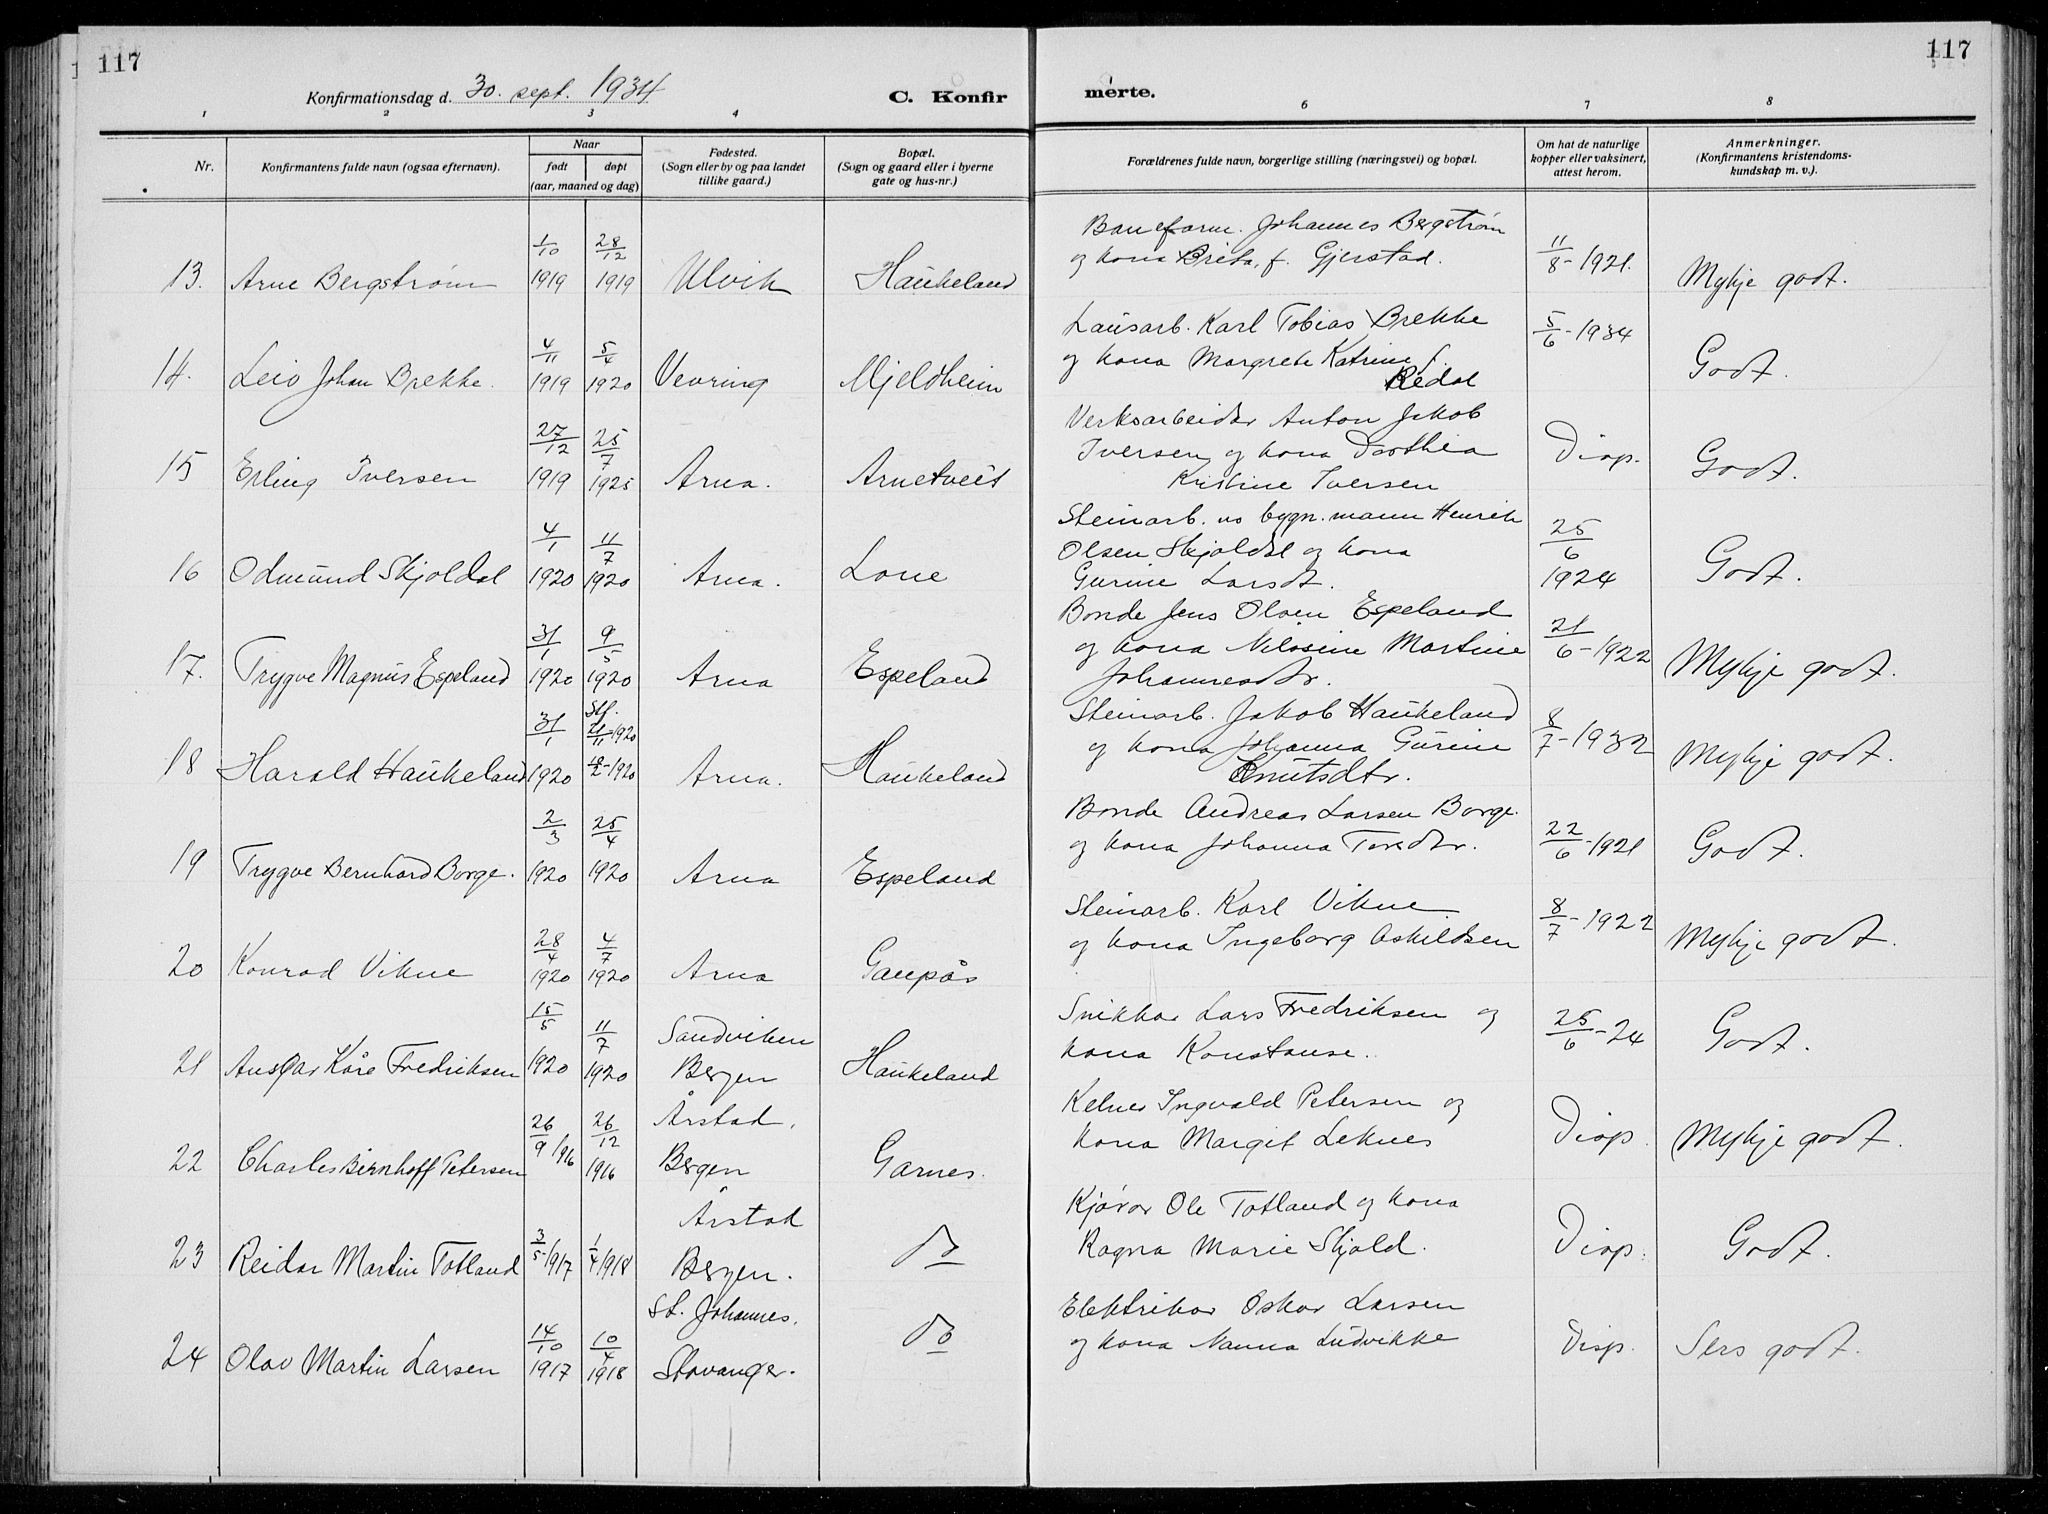 117
117
Konfirmationsdag d. 30. sept. 1934
C. Konfir
merte.
1 2 3 4 6 7 8
Nr.
Konfirmantens fulde navn (ogsaa efternavn).
Naar
født døpt
(aar, maaned og dag)
Fødested.
(Sogn eller by og paa landet
tillike gaard.)
Bopæl.
(Sogn og gaard eller i byerne
gate og hus-nr.)
Forældrenes fulde navn, borgerlige stilling (næringsvei) og bopæl.
Om hat de naturlige
kopper eller vaksinert,
attest herom.
Anmerkninger.
(Konfirmantens kristendoms-
kundskap m. v.).
1/10 28/12 Baneform. Johannes Bergstrøm
13. Arne Bergstrøm 1919 1919 Ulvik Haukeland og kona Brita, f. Gjerstad. 11/8-1921. Mykje godt.
4/11 5/4 Lausarb. Karl Tobias Brekke 5/6-1934
14. Leiv Johan Brekke. 1919 1920 Vevring Mjeldheim og kona Margrete Katrine f. Godt.
Redal
27/12 25/7 Verksarbeider Anton Jakob
15 Erling Iversen 1919 1925 Arna. Arnetveit Iversen og kona Dorthea Disp. Godt.
Kristine Iversen
4/1 11/7 Steinarb. og bygn.mann Henrik 25/6
16 Odmund Skjoldal 1920 1920 Arna. Lone Olsen Skjoldal og kona 1924 Godt.
Gurine Larsdt.
31/1 9/5 Bonde Jens Olsen Espeland
17. Trygve Magnus Espeland 1920 1920 Arna Espeland og kona Nilsine Martine 21/6-1922 Mykje godt.
Johannesdtr.
31/1 Stf. 21/11-1920 Steinarb. Jakob Haukeland
18 Harald Haukeland 1920 8/2-1920 Arna. Haukeland og kona Johanna Gurine 8/7-1932 Mykje godt.
Knutsdtr.
2/3 25/4 Bonde Andreas Larsen Borge.
19 Trygve Bernhard Borge. 1920 1920 Arna Espeland og kona Johanna Toresdtr. 22/6-1921 Godt.
28/4 4/7 Steinarb. Karl Vikne
20 Konrad Vikne 1920 1920 Arna Gaupås og kona Ingeborg Askildsen 8/7-1922 Mykje godt.
15/5 11/7 Sandviken Snikkar Lars Fredriksen og
21 Ansgar Kåre Fredriksen 1920 1920 Bergen Haukeland kona Konstanse. 25/6-24 Godt.
26/9 1916 26/12 Årstad, Kelner Ingvald Petersen og
22 Charles Birnhoff Petersen 1916 Bergen Garnes. kona Margit Leknes Disp. Mykje godt.
Årstad Kjørar Ole Totland og kona
23 Reidar Martin Totland 3/5-1917 1/4 1918 Bergen. do Ragna Marie Skjold. Disp. Godt.
14/10 10/4 St. Johannes, Elektrikar Oskar Larsen
24 Olav Martin Larsen 1917 1918 Stavanger. do og kona Nanna Ludvikke Disp. Sers godt.